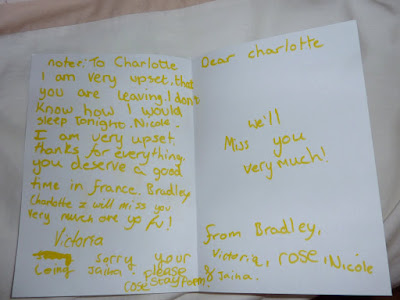 note: To Charlotte
I am very upset that
you are leaving. I don't
know how I would
sleep Tonight. Nicole.
I am very upset
thanks for everything.
you deserve a good
time in france. Bradley
Charlotte I will miss you
very much are yo fu!
Victoria
Sorry your
Long Jaina. Please
rose stay Poem
Dear charlotte
we'll
Miss you
very much!
from Bradley,
Victoria, rose, Nicole
& Jaina.